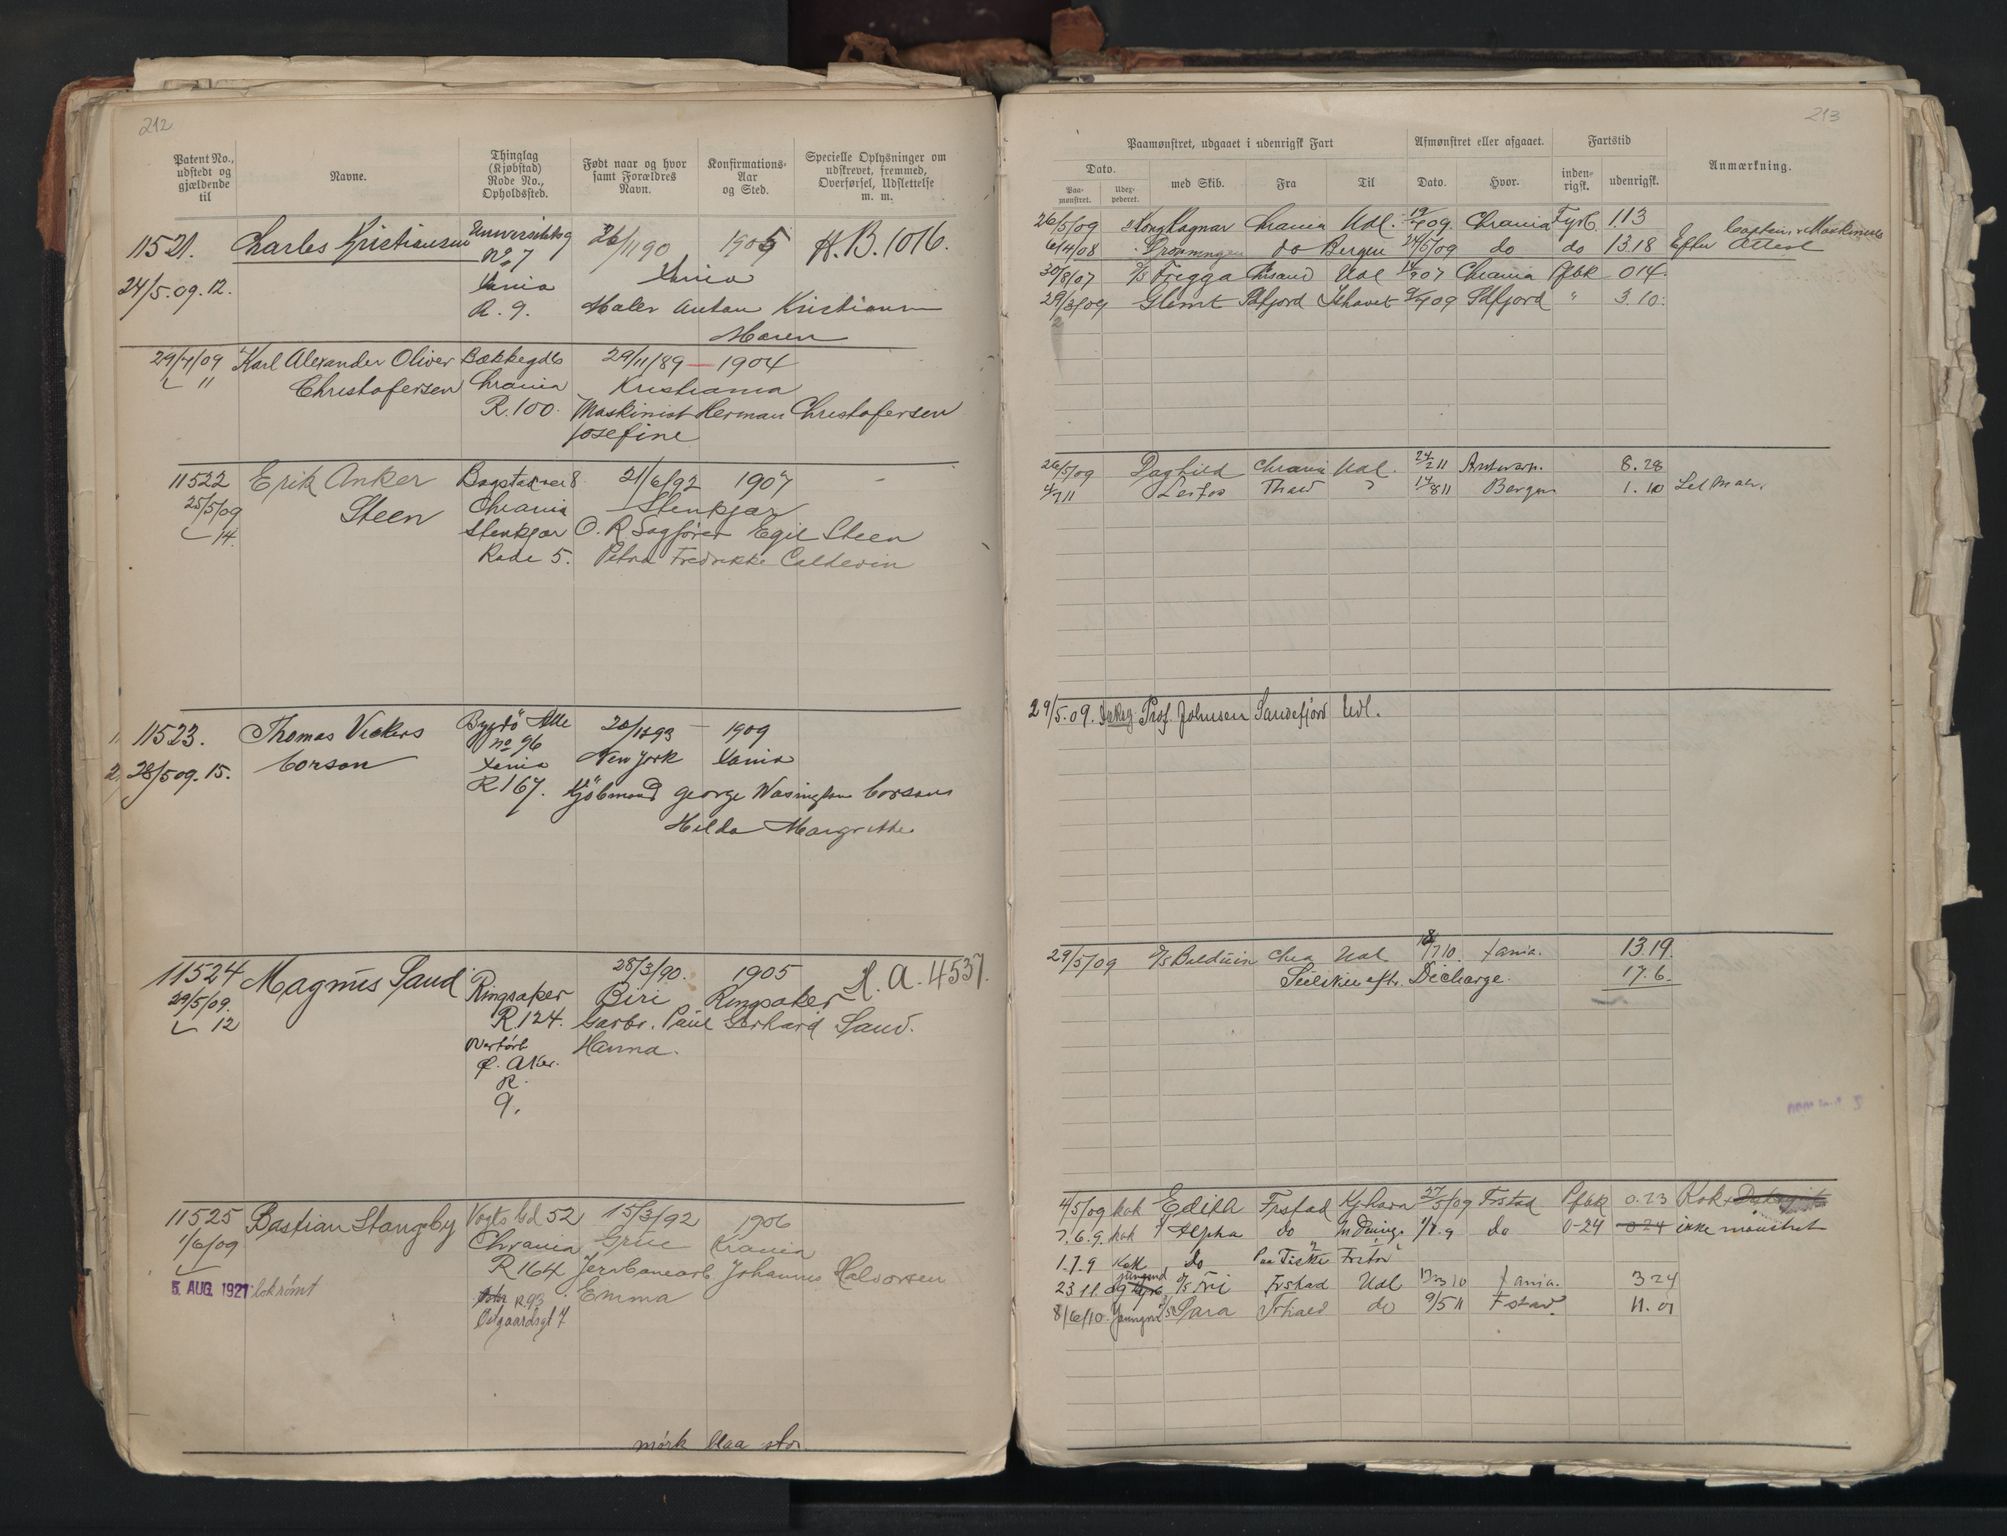 212
Patent No., udstedt og gjældende til
Navne.
Thinglag (Kjøbstad) Rode No., Opholdssted.
Født naar og hvor samt Forældres Navn.
Konfirmations-Aar og Sted.
Specielle Oplysninger om udskrevet, fremmed, Overførsel, Udslettelse m. m.
11521. Charles Kristiansen Universitetsg 26/11 90 1905 H.B. 1016.
No 7
24/5.09.12. Xania Xania
R. 9. Maler Anton Kristiansen
Maren
29/4/09 Karl Alexander Oliver Bækkegd 6 29/11/89 — 1904
" 11 Christofersen Chrania Kristiania
R. 100. Maskinist Herman Christofersen
Josefine
11522 Erik Anker Bogstadvei 8 21/6/92 1907
25/5/09 Steen Chrania Stenkjær
14. Stenkjær O. R. Sagfører Egil Steen
Rode 5. Petra Fredrikke Caldevin
11523. Thomas Vickers Bygdö Alle 20/12 93 — 1909
no 96
28/5 09. 15. Corson Xania New York Xania
R 167. Kjöbmand George Wasington Corsons
Hilda Margrethe
11524 Magnus Sand Ringsaker 28/3/90. 1905 H. A. 4537.
29/5/09. Biri Ringsaker
12 R. 124. Garbr. Paul Gerhard Sand.
Overført Hanna.
Ø. Aker.
R.
9.
11525 Bastian Stangeby Vogts Gd 52 15/3/92 1906
1/6/09 Chrania Grue Krania
R 164 Jernbanearb. Johannes Halvorsen
5. AUG. 1921 lokrømt R. 93 Emma
Østgaardsgt 7
mörk blaa stor
213
Paamønstret, udgaaet i udenrigsk Fart
Afmønstret eller afgaaet.
Fartstid
Dato.
Paa-monstret.
Udex-pederet.
med Skib.
Fra
Til
Dato.
Hvor.
inden-rigsk.
udenrigsk.
Anmærkning.
26/5/09 Kong Ragnar Chrania Udl. 09 Chrania Fyrb. 113
6/4/08 Dronningen do Bergen 24/5/09 do do 13.18 Efter Captein Maskinists Attest
30/8/07 D/S Frigga Chrsand Udl 07 Chrania Pfbk 0 14.
29/3/09 Glimt Sdfjord Ishavet 09 Sdfjord " 3.10.
26/5/09 Daghild Chrania Udl. 24/2 11 Antwerp. 8.28
4/7 11 Lesfos Thjed " 17/8 11 Bergen 1. 10 Let Matr.
29/5.09. Prof. Johnsen Sandefjord Udl.
29/5/09 D/S Balduin Chra Udl 18/7 10. Xania. 13.19.
Seilsku eftr. Decharge. 17.6.
4/5/09 kok Edith Frstad Kjhavn 27/5/09 Frstad Pfbk 0.23 Kok
7.6.9. kok Alpha do 1/7.9 do 0-24 0 24 ikke mønstret
1.7.9 Kok do Paa Fiske
23 11 09 jungmd D/S Fri Frstad Udl 10 Xania. 3 24
8/6/10. Jungmd D/S Sara Frhald do 9/5 11 Fstad. 11. 01